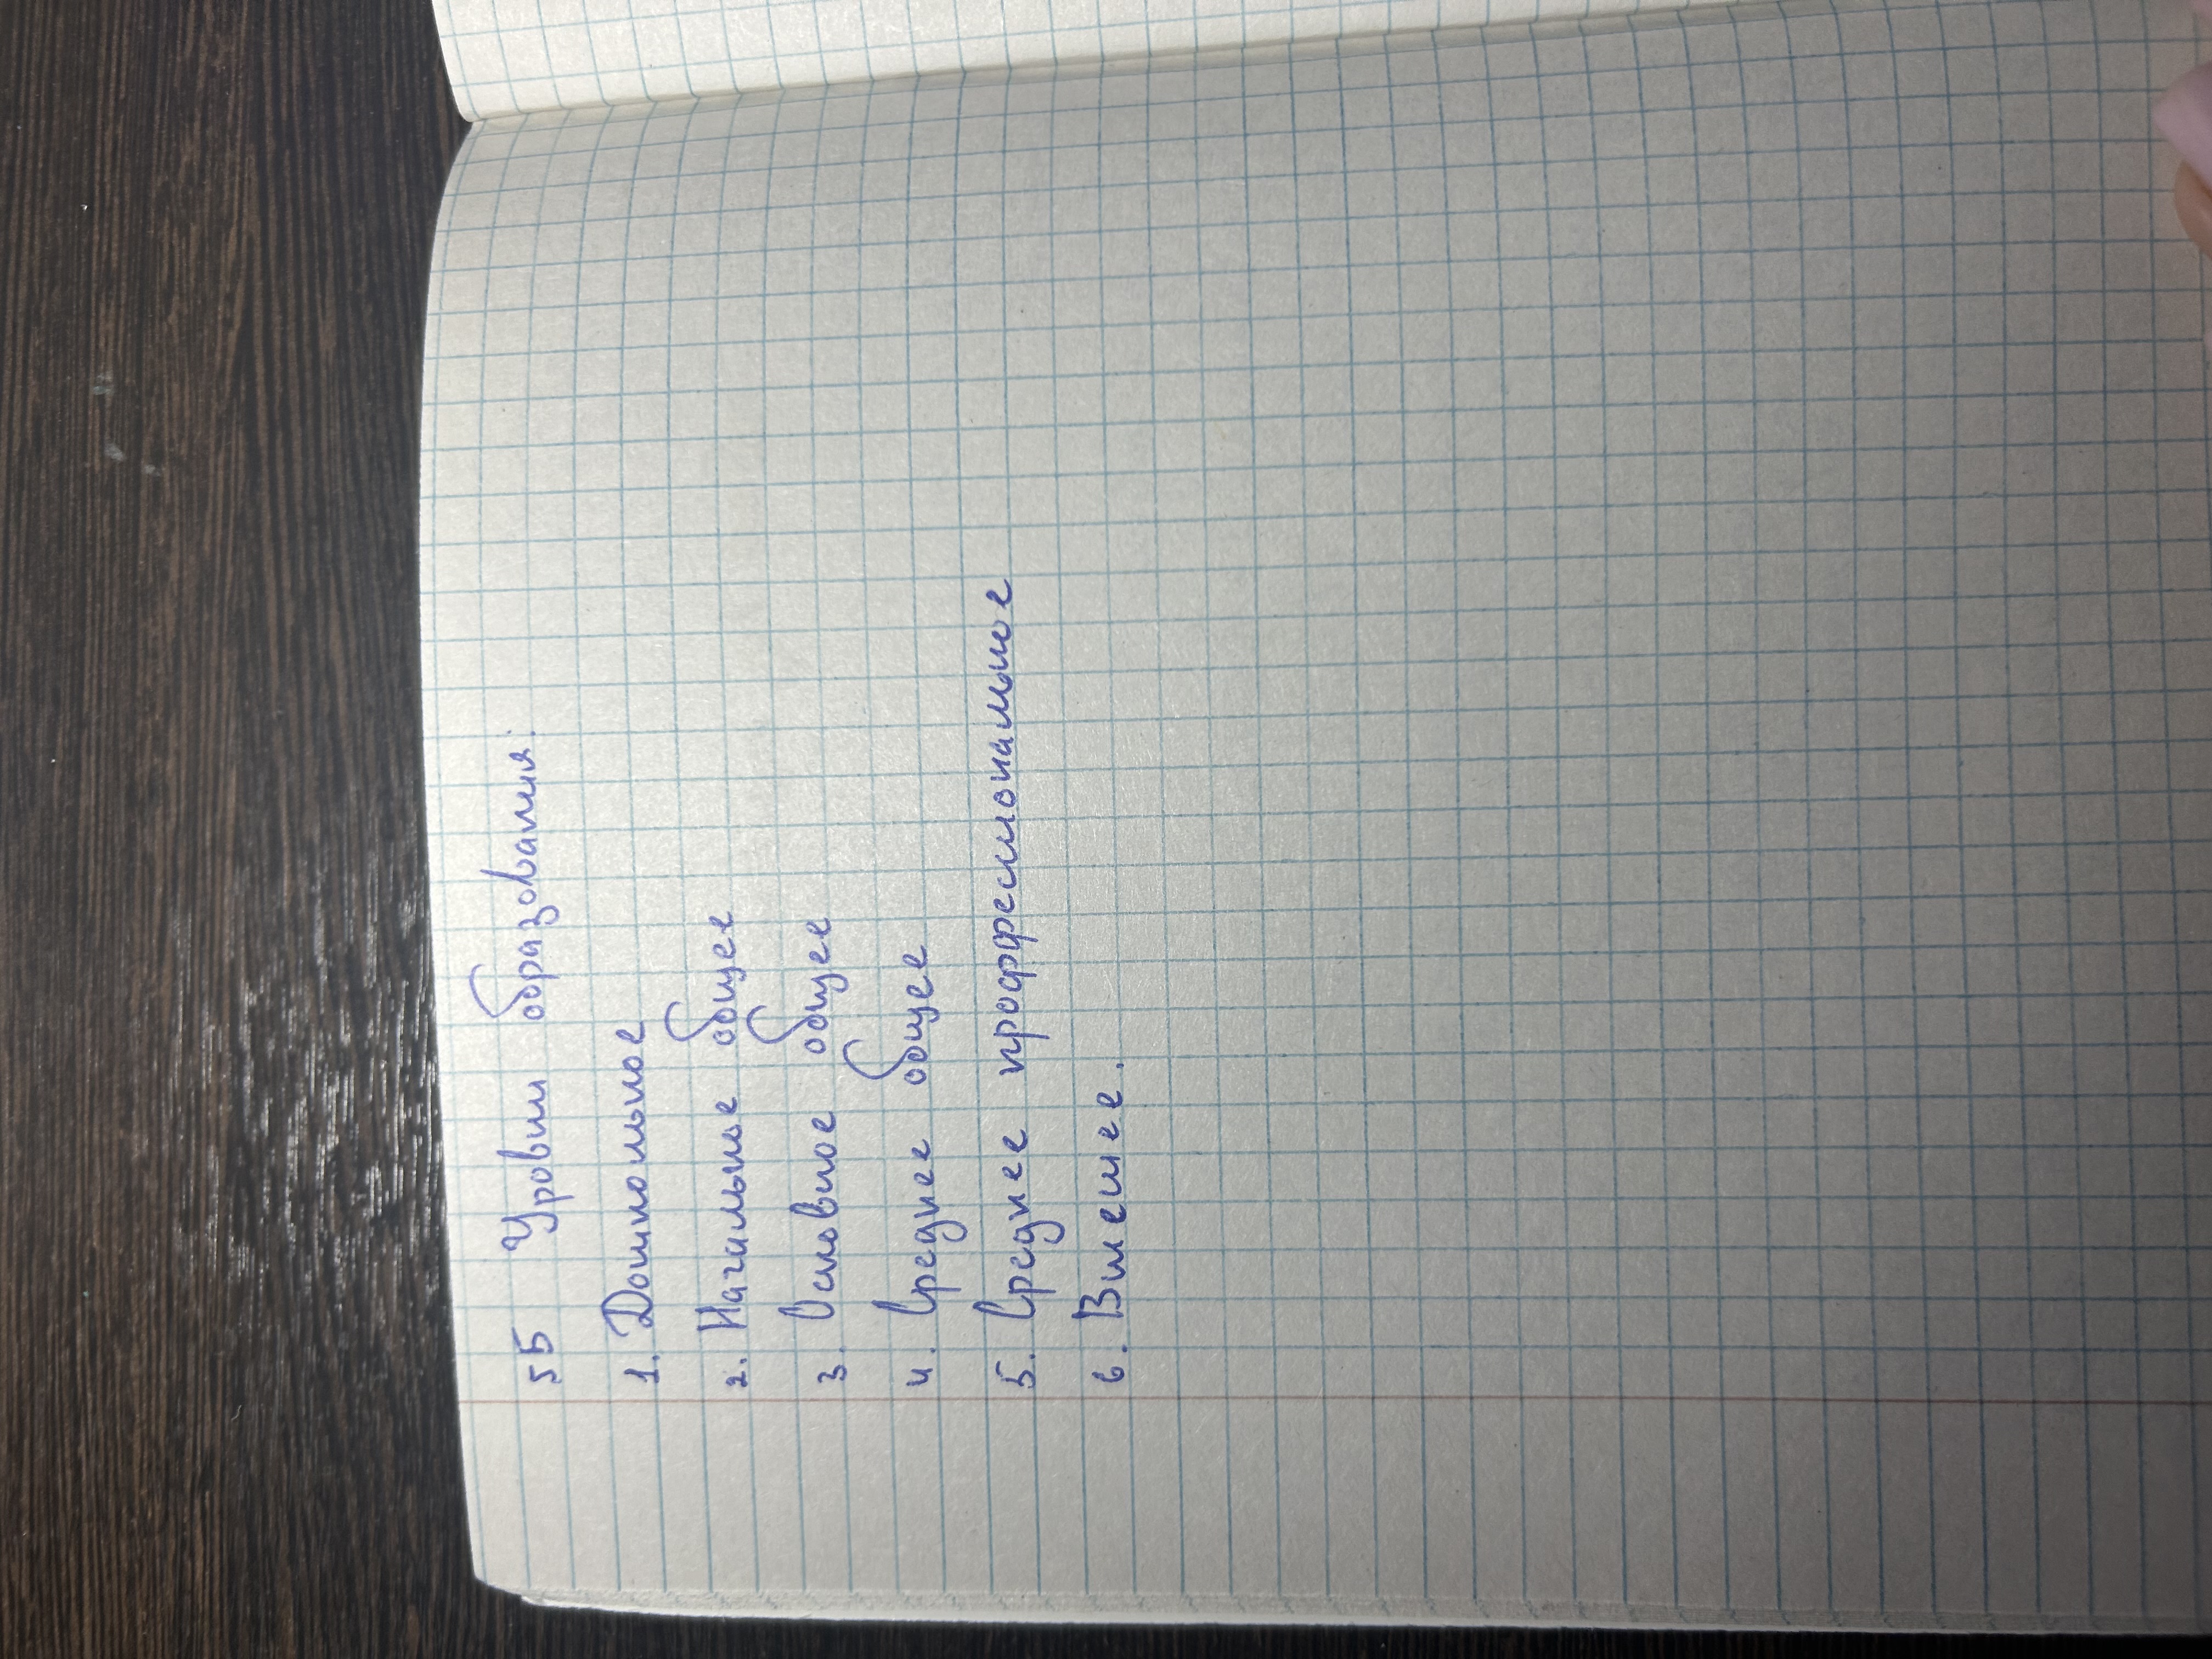 5Б Уровни образования:
1. Дошкольное
2. Начальное общее
3. Основное общее
4. Среднее общее
5. Среднее проффессиональное
6. Вышешее.